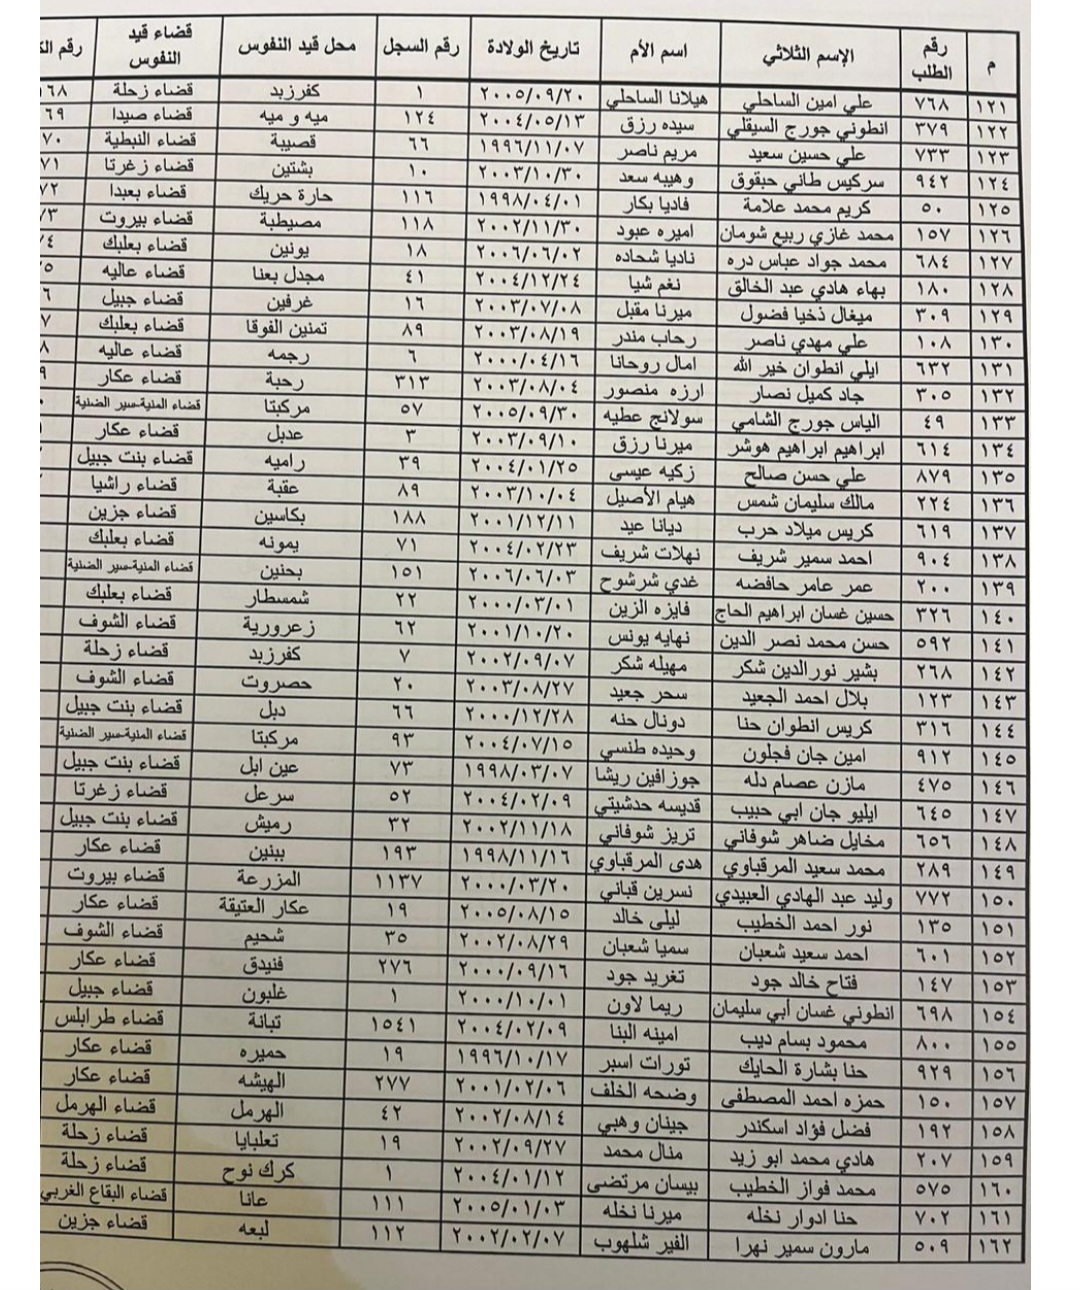 م رقم الطلب الإسم الثلاثي اسم الأم تاريخ الولادة رقم السجل محل قيد النفوس قضاء قيد النفوس رقم
١٢١ ٧٦٨ علي امين الساحلي هيلانا الساحلي ٢٠٠٥/٠٩/٢٠ ١ كفرزبد قضاء زحلة ١٦٨
١٢٢ ٣٧٩ انطوني جورج السيقلي سيده رزق ٢٠٠٤/٠٥/١٣ ١٢٤ ميه و ميه قضاء صيدا ٦٩
١٢٣ ٧٣٣ علي حسين سعيد مريم ناصر ١٩٩٦/١١/٠٧ ٦٦ قصيبة قضاء النبطية ٧٠
١٢٤ ٩٤٢ سركيس طاني حبقوق وهيبه سعد ٢٠٠٣/١٠/٣٠ ١٠ بشتين قضاء زغرتا ٧١
١٢٥ ٥٠ كريم محمد علامة فاديا بكار ١٩٩٨/٠٤/٠١ ١١٦ حارة حريك قضاء بعبدا ٧٢
١٢٦ ١٥٧ محمد غازي ربيع شومان اميره عبود ٢٠٠٢/١١/٣٠ ١١٨ مصيطبة قضاء بيروت ٧٣
١٢٧ ٦٨٤ محمد جواد عباس دره ناديا شحاده ٢٠٠٦/٠٦/٠٢ ١٨ يونين قضاء بعلبك ٤
١٢٨ ١٨٠ بهاء هادي عبد الخالق نغم شيا ٢٠٠٤/١٢/٢٤ ٤١ مجدل بعنا قضاء عاليه ٥
١٢٩ ٣٠٩ ميغال ذخيا فضول ميرنا مقبل ٢٠٠٣/٠٧/٠٨ ١٦ غرفين قضاء جبيل ٦
١٣٠ ١٠٨ علي مهدي ناصر رحاب مندر ٢٠٠٣/٠٨/١٩ ٨٩ تمنين الفوقا قضاء بعلبك ٧
١٣١ ٦٣٢ ايلي انطوان خير الله امال روحانا ٢٠٠٠/٠٤/١٦ ٦ رجمه قضاء عاليه ٨
١٣٢ ٣٠٥ جاد كميل نصار ارزه منصور ٢٠٠٣/٠٨/٠٤ ٣١٣ رحبة قضاء عكار ٩
١٣٣ ٤٩ الياس جورج الشامي سولانج عطيه ٢٠٠٥/٠٩/٣٠ ٥٧ مركبتا قضاء المنية-سير الضنية
١٣٤ ٦١٤ ابراهيم ابراهيم هوشر ميرنا رزق ٢٠٠٣/٠٩/١٠ ٣ عدبل قضاء عكار
١٣٥ ٨٧٩ علي حسن صالح زكيه عيسى ٢٠٠٤/٠١/٢٥ ٣٩ راميه قضاء بنت جبيل
١٣٦ ٢٢٤ مالك سليمان شمس هيام الأصيل ٢٠٠٣/١٠/٠٤ ٨٩ عقبة قضاء راشيا
١٣٧ ٦١٩ كريس ميلاد حرب ديانا عيد ٢٠٠١/١٢/١١ ١٨٨ بكاسين قضاء جزين
١٣٨ ٩٠٤ احمد سمير شريف نهلات شريف ٢٠٠٤/٠٢/٢٣ ٧١ يمونه قضاء بعلبك
١٣٩ ٢٠٠ عمر عامر حافضه غدي شرشوح ٢٠٠٦/٠٦/٠٣ ١٥١ بحنين قضاء المنية-سير الضنية
١٤٠ ٣٢٦ حسين غسان ابراهيم الحاج فايزه الزين ٢٠٠٠/٠٣/٠١ ٢٢ شمسطار قضاء بعلبك
١٤١ ٥٩٢ حسن محمد نصر الدين نهايه يونس ٢٠٠١/١٠/٢٠ ٦٢ زعرورية قضاء الشوف
١٤٢ ٢٦٨ بشير نورالدين شكر مهيله شكر ٢٠٠٢/٠٩/٠٧ ٧ كفرزبد قضاء زحلة
١٤٣ ١٢٣ بلال احمد الجعيد سحر جعيد ٢٠٠٣/٠٨/٢٧ ٢٠ حصروت قضاء الشوف
١٤٤ ٣١٦ كريس انطوان حنا دونال حنه ٢٠٠٠/١٢/٢٨ ٦٦ دبل قضاء بنت جبيل
١٤٥ ٩١٢ امين جان فجلون وحيده طنسي ٢٠٠٤/٠٧/١٥ ٩٣ مركبتا قضاء المنية-سير الضنية
١٤٦ ٤٧٥ مازن عصام دله جوزافين ريشا ١٩٩٨/٠٣/٠٧ ٧٣ عين ابل قضاء بنت جبيل
١٤٧ ٦٤٥ ايليو جان ابي حبيب قديسه حدشيتي ٢٠٠٤/٠٢/٠٩ ٥٢ سرعل قضاء زغرتا
١٤٨ ٦٥٦ مخايل ضاهر شوفاني تريز شوفاني ٢٠٠٢/١١/١٨ ٣٢ رميش قضاء بنت جبيل
١٤٩ ٢٨٩ محمد سعيد المرقباوي هدى المرقباوي ١٩٩٨/١١/١٦ ١٩٣ ببنين قضاء عكار
١٥٠ ٧٧٢ وليد عبد الهادي العبيدي نسرين قباني ٢٠٠٠/٠٣/٢٠ ١١٣٧ المزرعة قضاء بيروت
١٥١ ١٣٥ نور احمد الخطيب ليلى خالد ٢٠٠٥/٠٨/١٥ ١٩ عكار العتيقة قضاء عكار
١٥٢ ٦٠١ احمد سعيد شعبان سميا شعبان ٢٠٠٢/٠٨/٢٩ ٣٥ شحيم قضاء الشوف
١٥٣ ١٤٧ فتاح خالد جود تغريد جود ٢٠٠٠/٠٩/١٦ ٢٧٦ فنيدق قضاء عكار
١٥٤ ٦٩٨ انطوني غسان أبي سليمان ريما لاون ٢٠٠٠/١٠/٠١ ١ غلبون قضاء جبيل
١٥٥ ٨٠٠ محمود بسام ديب امينه البنا ٢٠٠٤/٠٢/٠٩ ١٥٤١ تبانة قضاء طرابلس
١٥٦ ٩٢٩ حنا بشارة الحايك تورات اسبر ١٩٩٦/١٠/١٧ ١٩ حميره قضاء عكار
١٥٧ ١٥٠ حمزه احمد المصطفى وضحه الخلف ٢٠٠١/٠٢/٠٦ ٢٧٧ الهيشه قضاء عكار
١٥٨ ١٩٢ فضل فؤاد اسكندر جينان وهبي ٢٠٠٢/٠٨/١٤ ٤٢ الهرمل قضاء الهرمل
١٥٩ ٢٠٧ هادي محمد ابو زيد منال محمد ٢٠٠٢/٠٩/٢٧ ١٩ تعلبايا قضاء زحلة
١٦٠ ٥٧٥ محمد فواز الخطيب بيسان مرتضى ٢٠٠٤/٠١/١٢ ١ كرك نوح قضاء زحلة
١٦١ ٧٠٢ حنا ادوار نخله ميرنا نخله ٢٠٠٥/٠١/٠٣ ١١١ عانا قضاء البقاع الغربي
١٦٢ ٥٠٩ مارون سمير نهرا الفير شلهوب ٢٠٠٢/٠٢/٠٧ ١١٢ لبعه قضاء جزين